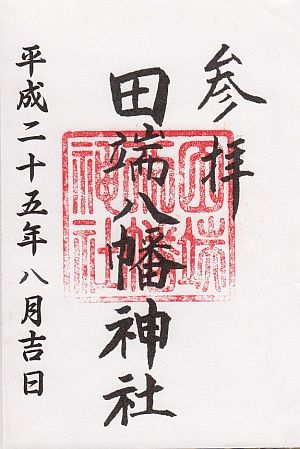 参拝
田端八幡神社
田端八幡神社
平成二十五年八月吉日